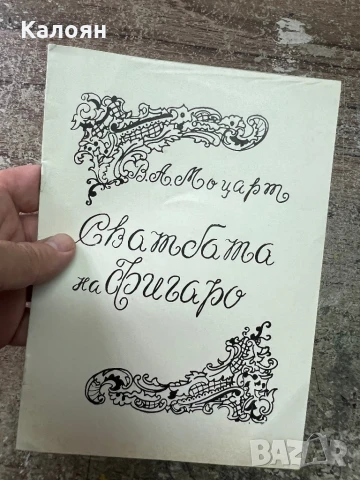 Калоян
В.А.Моцарт
Сватбата
на Фигаро
BAZAR